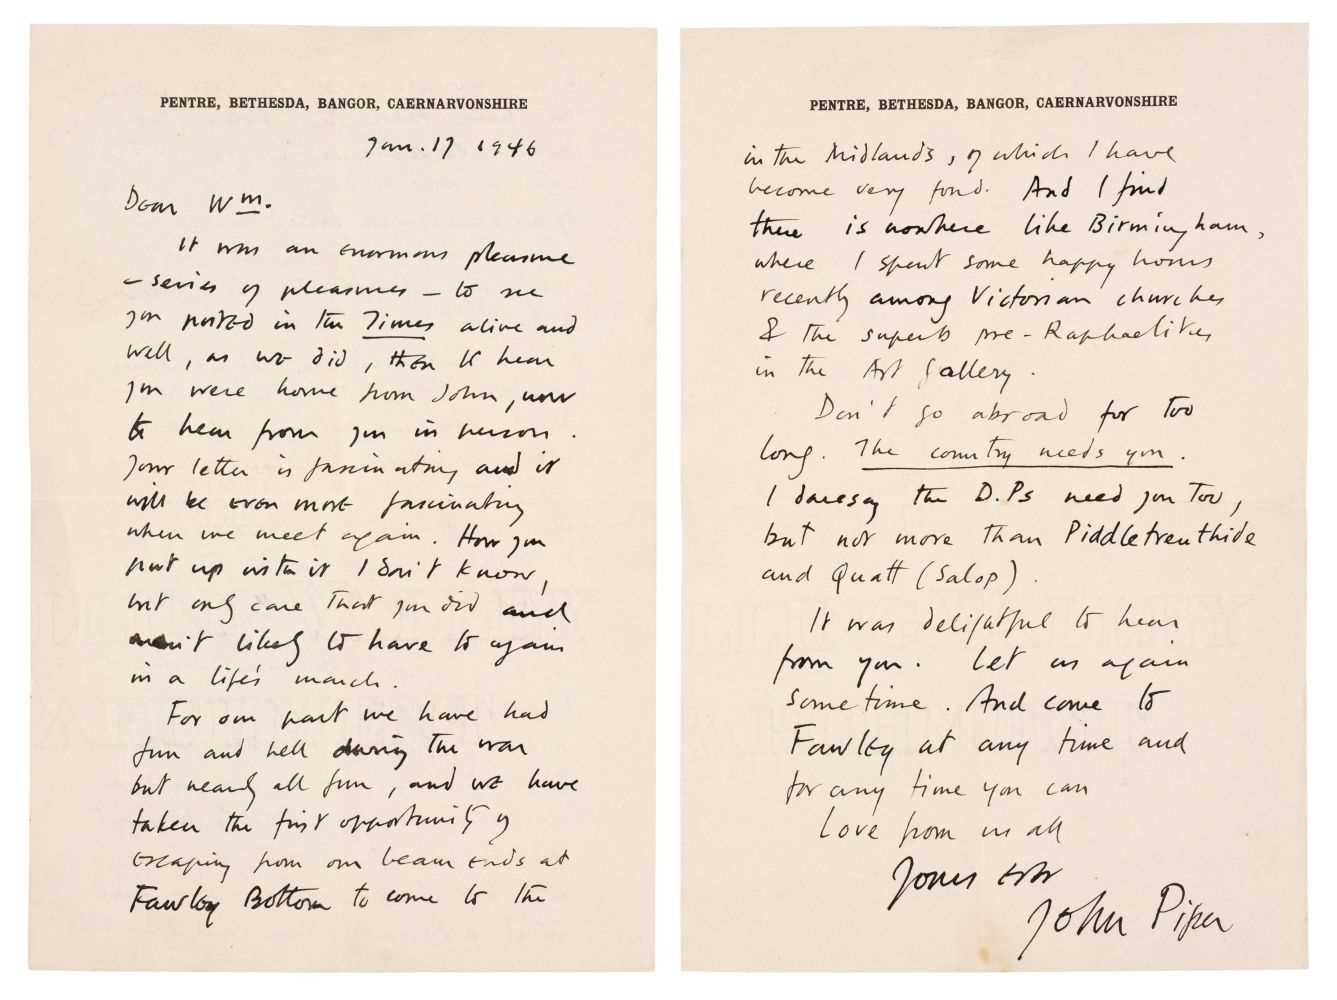 PENTRE, BETHESDA, BANGOR, CAERNARVONSHIRE
Jan. 17 1946
Dear Wm.
It was an enormous pleasure
– series of pleasures – to see
you posted in the Times alive and
well, as we did, then to hear
you were home from John, now
to hear from you in person.
Your letter is fascinating and it
will be even more fascinating
when we meet again. How you
put up with it I don't know,
but only care that you did and
aren't likely to have to again
in a life's march.
For our part we have had
fun and hell during the war
but nearly all fun, and we have
taken the first opportunity of
escaping from our beam ends at
Fawley Bottom to come to the
PENTRE, BETHESDA, BANGOR, CAERNARVONSHIRE
in the Midlands, of which I have
become very fond. And I find
there is nowhere like Birmingham,
where I spent some happy hours
recently among Victorian churches
& the superb pre-Raphaelites
in the Art Gallery.
Don't go abroad for too
long. The country needs you.
I daresay the D.Ps need you too,
but not more than Piddletrenthide
and Quatt (Salop).
It was delightful to hear
from you. Let us again
sometime. And come to
Fawley at any time and
for any time you can
Love from us all
Yours ever
John Piper